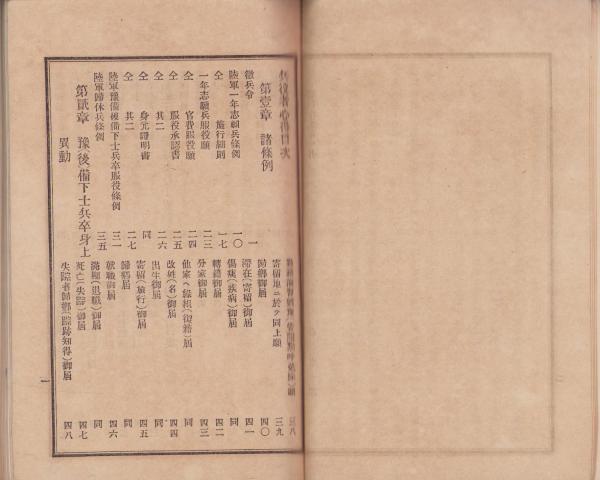 服役者心得目次
第壹章 諸條例
徵兵令 一
陸軍一年志願兵條例 一〇
仝 施行細則 一七
一年志願兵服役願 二三
仝 官費服役願 二四
仝 服役承認書 二五
仝 其二 二六
仝 身元證明書 同
仝 其二 二七
陸軍豫備後備下士兵卒服役條例 三一
陸軍歸休兵條例 三五
第貳章 豫後備下士兵卒身上
異動
願 三八
寄留地ニ於テ同上願 三九
歸鄉御屆 四〇
滯在(寄留)御屆 四一
傷痍(疾病)御屆 同
轉籍御屆 四二
分家御屆 四三
他家ヘ緣組(復籍)御屆 同
改姓(名)御屆 四四
出生御屆 同
寄留(旅行)御屆 四五
歸鄉御屆 同
就職御屆 四六
滿期(退職)御屆 同
死亡(失踪)御屆 四七
失踪者歸鄉(踪跡知得)御屆 四八
一